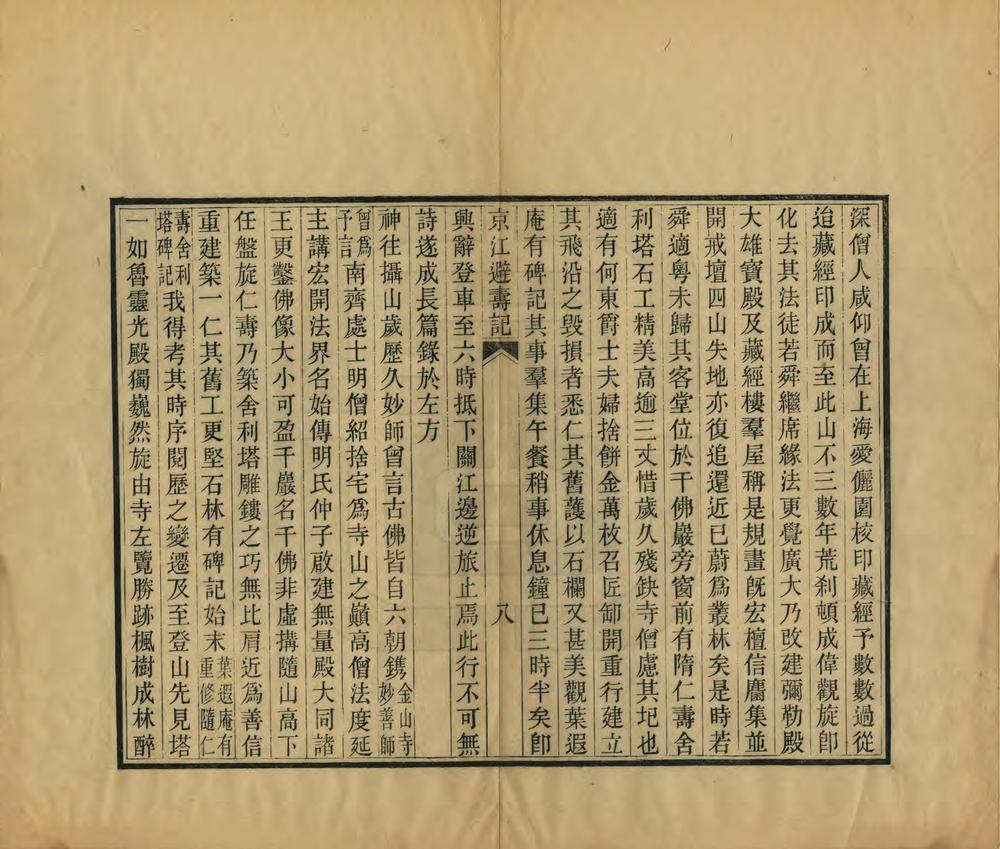 深僧人咸仰曾在上海愛儷園校印藏經予數數過從
迨藏經印成而至此山不三數年荒刹頓成偉觀旋卽
化去其法徒若舜繼席緣法更覺廣大乃改建彌勒殿
大雄寶殿及藏經樓羣屋稱是規畫旣宏檀信麕集並
開戒壇四山失地亦復追還近已蔚爲叢林矣是時若
舜適粵未歸其客堂位於千佛巖旁窗前有隋仁壽舍
利塔石工精美高逾三丈惜歲久殘缺寺僧慮其圮也
適有何東爵士夫婦捨餠金萬枚召匠卸開重行建立
其飛沿之毀損者悉仁其舊護以石欄又甚美觀葉遐
庵有碑記其事羣集午餐稍事休息鐘已三時半矣卽
京江避壽記 八
興辭登車至六時抵下關江邊逆旅止焉此行不可無
詩遂成長篇錄於左方
神往攝山歲歷久妙師曾言古佛皆自六朝鐫金山寺妙善師
曾爲予言南齊處士明僧紹捨宅爲寺山之巔高僧法度延
主講宏開法界名始傳明氏仲子啟建無量殿大同諸
王更鑿佛像大小可盈千巖名千佛非虛搆隨山高下
任盤旋仁壽乃築舍利塔雕鏤之巧無比肩近爲善信
重建築一仁其舊工更堅石林有碑記始末葉遐庵有重修隨仁
壽舍利塔碑記我得考其時序閱歷之變遷及至登山先見塔
一如魯靈光殿獨巍然旋由寺左覽勝跡楓樹成林醉